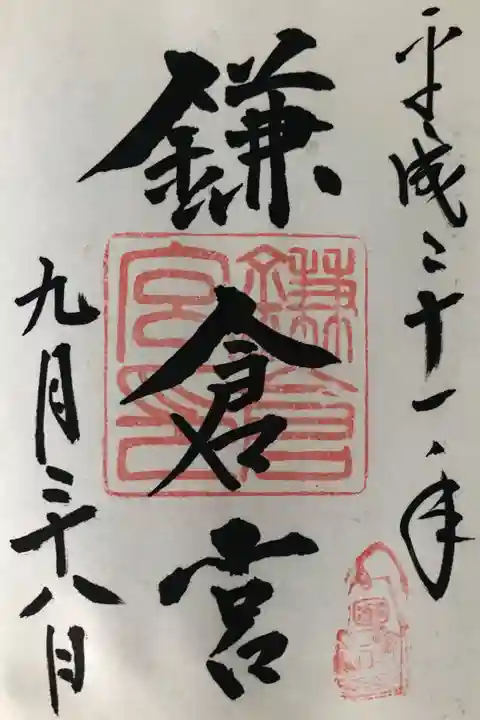 平成二十一年
鎌倉宮
九月二十八日
鎌倉
宮印